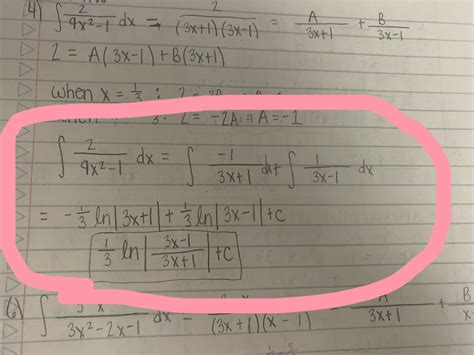 4) ∫ 2/(9x²-1) dx = 2/((3x+1)(3x-1)) = A/(3x+1) + B/(3x-1)
2 = A(3x-1) + B(3x+1)
when x = 1/3 :
2 = -2A ⇒ A = -1
∫ 2/(9x²-1) dx = ∫ -1/(3x+1) dx + ∫ 1/(3x-1) dx
= -1/3 ln|3x+1| + 1/3 ln|3x-1| + c
1/3 ln|(3x-1)/(3x+1)| + c
6) ∫ x/(3x²-2x-1) dx = /((3x+1)(x-1)) = A/(3x+1) + B/